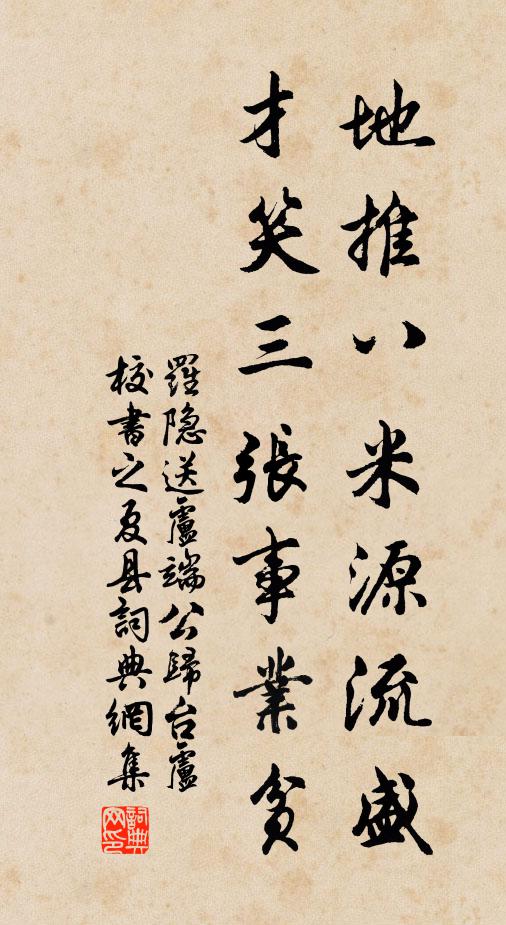 地推八米源流盛
才笑三張事業貧
羅隐送盧端公歸台盧
校書之夏县詞典網集
詞典网印